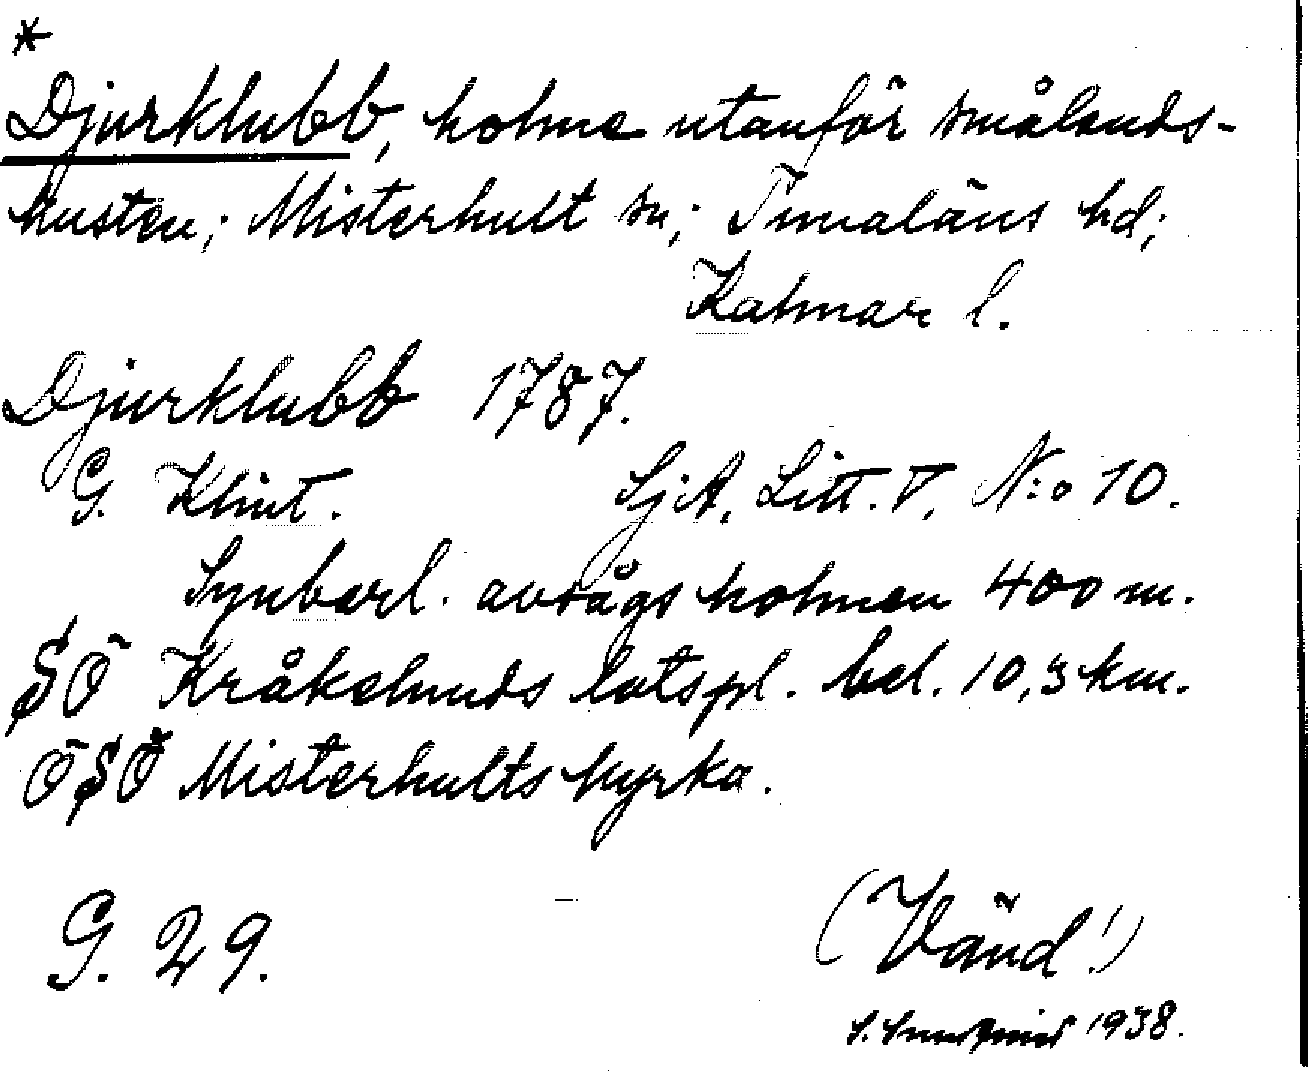 *
Djurklubb, holme utanför smålands-
kusten; Misterhult sn; Tunaläns hd;
Kalmar l.
Djurklubb 1787.
G. Klint. SjA, Litt. V, N:o 10.
Synbarl. avsågs holmen 400 m.
SÖ Kråkelunds lotspl. bel. 10,3 km.
ÖSÖ Misterhults kyrka.
G. 29.
(Vänd!)
S. 1938.